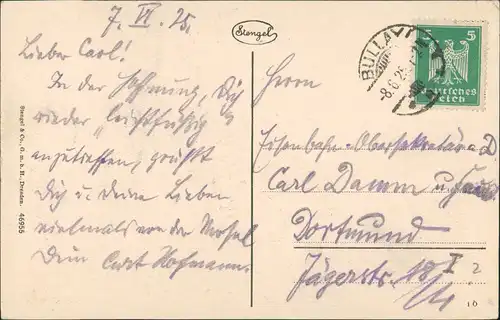 7. VI. 25.
Stengel
Lieber Carl!
In der Hoffnung, Dich
wieder "leichtfüßig"
anzutreffen, grüßt
Dich u. Deine Lieben
vielmals von der Mosel
Dein Curt Hofmann.
Stengel & Co., G. m. b. H., Dresden. 46955
BULLAY
8.6.25
5
Deutsches
Reich
Herrn
Eisenbahn-Obersekretär a D
Carl Damm u.
Dortmund
Jägerstr. 18 I